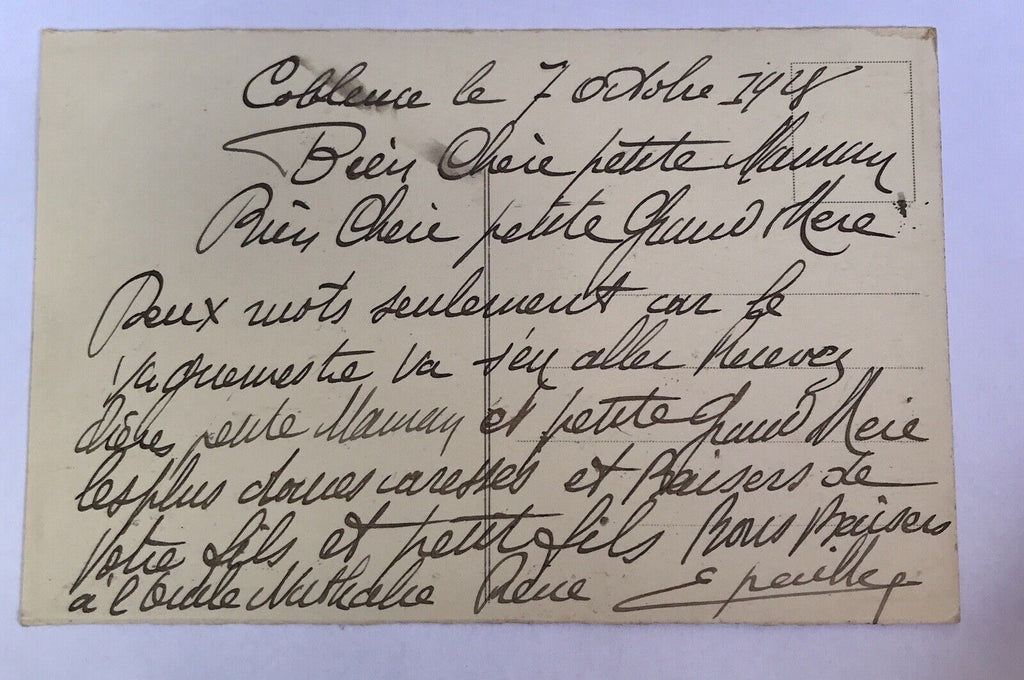 Coblence le 7 Octobre 1928
Bien Chere petite Maman
Bien Chere petite Grand Mere
Deux mots seulement car le
vaguemestre va s'en aller Recevez
chères petite Maman et petite Grand Mere
les plus douces caresses et Baisers de
Votre fils et petit fils Bons Baisers
à l'Oncle Nathalie Réne